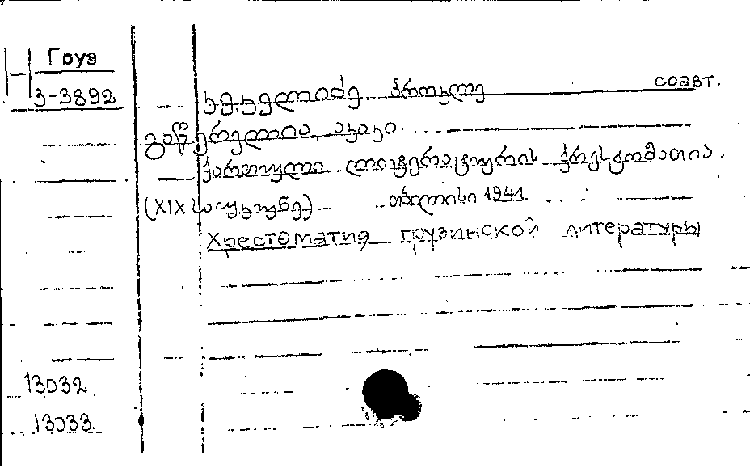 Груз
3-3892
კეკელიძე კორნელი соавт.
გაწერელია აკაკი
ქართული ლიტერატურის ქრესტომათია.
(XIX საუკუნე) თბილისი 1941.
Хрестоматия грузинской литературы
13032
13033